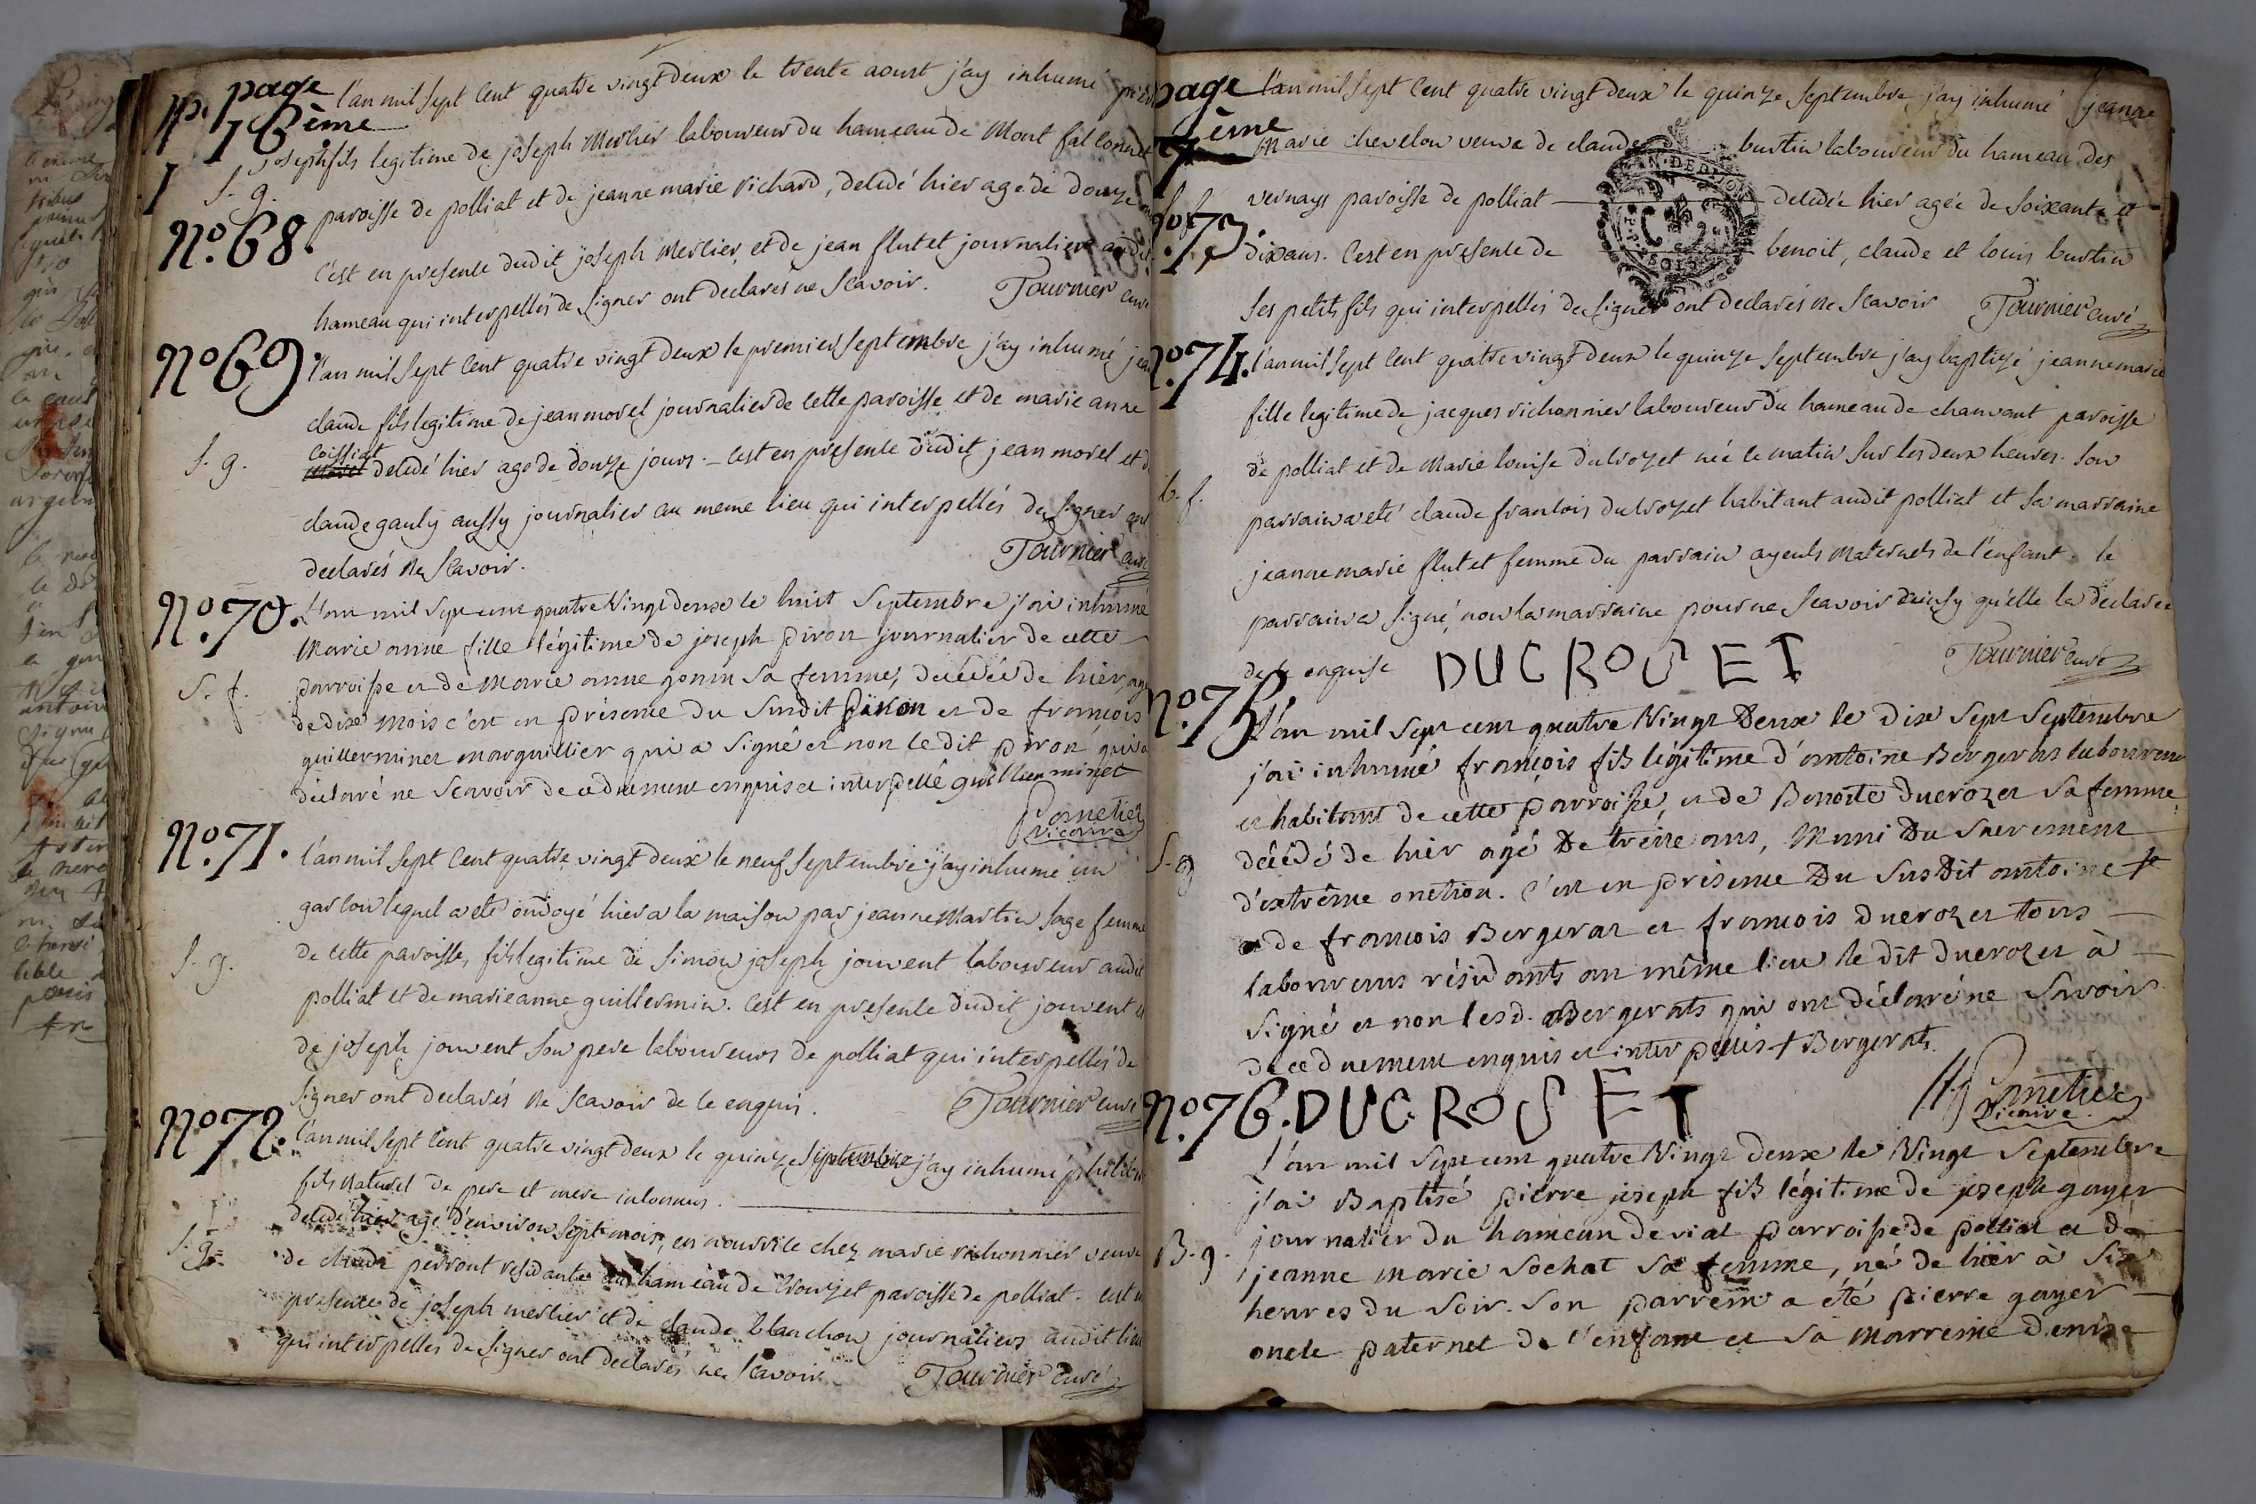 page
16ème
l'an mil sept cent quatre vingt deux le trente aoust j'ay inhumé
joseph fils legitime de joseph Merlier laboureur du hameau de Mont falconnet
S. g.
paroisse de polliat et de jeanne marie richard, decedé hier agé de douze
No. 68.
c'est en presence dudit joseph Merlier, et de jean flutet journalier audit
hameau qui interpellés de signer ont declarés ne scavoir. Tournier curé
No 69.
l'an mil sept cent quatre vingt deux le premier septembre j'ay inhumé jean
claude fils legitime de jean morel journalier de cette paroisse et de marie anne
S. g.
Coissiat
morel decedé hier agé de douze jours. c'est en presence dudit jean morel et d
claude gauly aussy journalier au meme lieu qui interpellés de signer ont
declarés ne scavoir. Tournier curé
No. 70.
L'an mil sept cent quatre Vingt deux le huit Septembre j'ai inhumé
Marie anne fille légitime de joseph piron journalier de cette
S. f.
parroisse et de Marie anne gonin sa femme, décédée de hier, age
de dix mois c'est en présence du susdit piron et de francois
guillerminet marguillier qui a signé et non le dit piron qui a
déclaré ne Scavoir de ce duement enquis et interpellé guillerminet
Cornetier
vicaire
No. 71.
l'an mil sept cent quatre vingt deux le neuf septembre j'ay inhumé un
garcon lequel a eté ondoyé hier a la maison par jeanne Martin sage femme
S. g.
de cette paroisse, fils legitime de simon joseph jouvent laboureur audit
polliat et de marieanne guillermin. c'est en presence dudit jouvent et
de joseph jouvent son pere laboureurs de polliat qui interpellés de
signer ont declarés ne scavoir de ce enquis. Tournier curé
No. 72.
l'an mil sept cent quatre vingt deux le quinze septembre j'ay inhumé philibert
fils naturel de pere et mere inconnus.
S. g.
decedé hier agé d'environ sept mois, en nourrice chez marie richonnier veuve
de claude perront residante au hameau de crouzet paroisse de polliat. c'est en
presence de joseph merlier et de claude blanchon journaliers audit lieu
qui interpellés de signer ont declarés ne scavoir. Tournier curé
page
17ème
l'an mil sept cent quatre vingt deux le quinze septembre j'ay inhumé jeanne
Marie chevelou veuve de claude burtin laboureur du hameau des
S. f.
vernays paroisse de polliat decedée hier agée de soixante et
No. 73.
dix ans. c'est en presence de benoit, claude et louis burtin
ses petits fils qui interpellés de signer ont declarés ne scavoir Tournier curé
No. 74.
l'an mil sept cent quatre vingt deux le quinze septembre j'ay baptizé jeanne marie
fille legitime de jacques richonnier laboureur du hameau de chanvant paroisse
de polliat et de Marie louise ducrozet née ce matin sur les deux heures. son
b. f.
parrain a eté claude francois ducrozet habitant audit polliat et sa marraine
jeanne marie flutet femme du parrain ayeuls maternels de l'enfant. le
parrain a signé, non la marraine pour ne scavoir ainsy qu'elle l'a declaré
de ce enquise DUCROSET Tournier curé
No. 75.
L'an mil sept cent quatre Vingt Deux le dix sept Septembre
j'ai inhumé françois fils légitime d'antoine Bergerat laboureur
et habitant de cette parroisse, et de Benoite ducrozet sa femme,
S. g
décédé de hier agé De treize ans, Muni Du Sacrement
d'extrême onction. c'est en présence Du Susdit antoine +
et de francois Bergerat et francois ducrozet tous
laboureurs résidants au même lieu le dit ducrozet à
signé et non lesd. Bergerats qui ont déclaré ne Savoir
de ce duement enquis et interpellés + Bergerat.
Cornetier
Vicaire
No. 76.
DUCROSET
L'an mil sept cent quatre Vingt deux le Vingt Septembre
j'ai Baptisé pierre joseph fils légitime de joseph gayer
B. g.
journalier du hameau de viat parroisse de polliat et de
jeanne marie Sochat sa femme, né de hier à Six
heures du Soir. Son parrein a été pierre gayer
oncle paternel de l'enfant et sa marreine denise